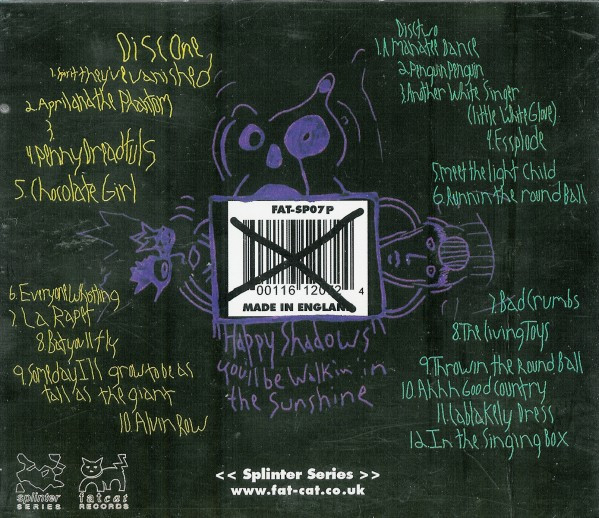 Disc One
1. Spirit they've vanished
2. April and the Phantom
3
4. Penny Dreadfuls
5. Chocolate Girl
6. Everyone Whistling
7. La Rapet
8 Bat you'll fly
9. Someday I'll grow to be as
tall as the giant
10. Alvin Row
Disc two
1. A Manatee Dance
2. Penguin Penguin
3. Another White Singer
(Little White Glove)
4. Essplode
5. meet the light Child
6. Runnin the round Ball
7. Bad Crumbs
8. The living Toys
9. Throwin the Round Ball
10. Ahhh Good Country
11. Lablakely Dress
12. In the Singing Box
FAT-SP07P
00116 120 2 4
MADE IN ENGLAND
Happy Shadows
you'll be Walkin in
the Sunshine
<< Splinter Series >>
www.fat-cat.co.uk
splinter
SERIES
fatcat
RECORDS